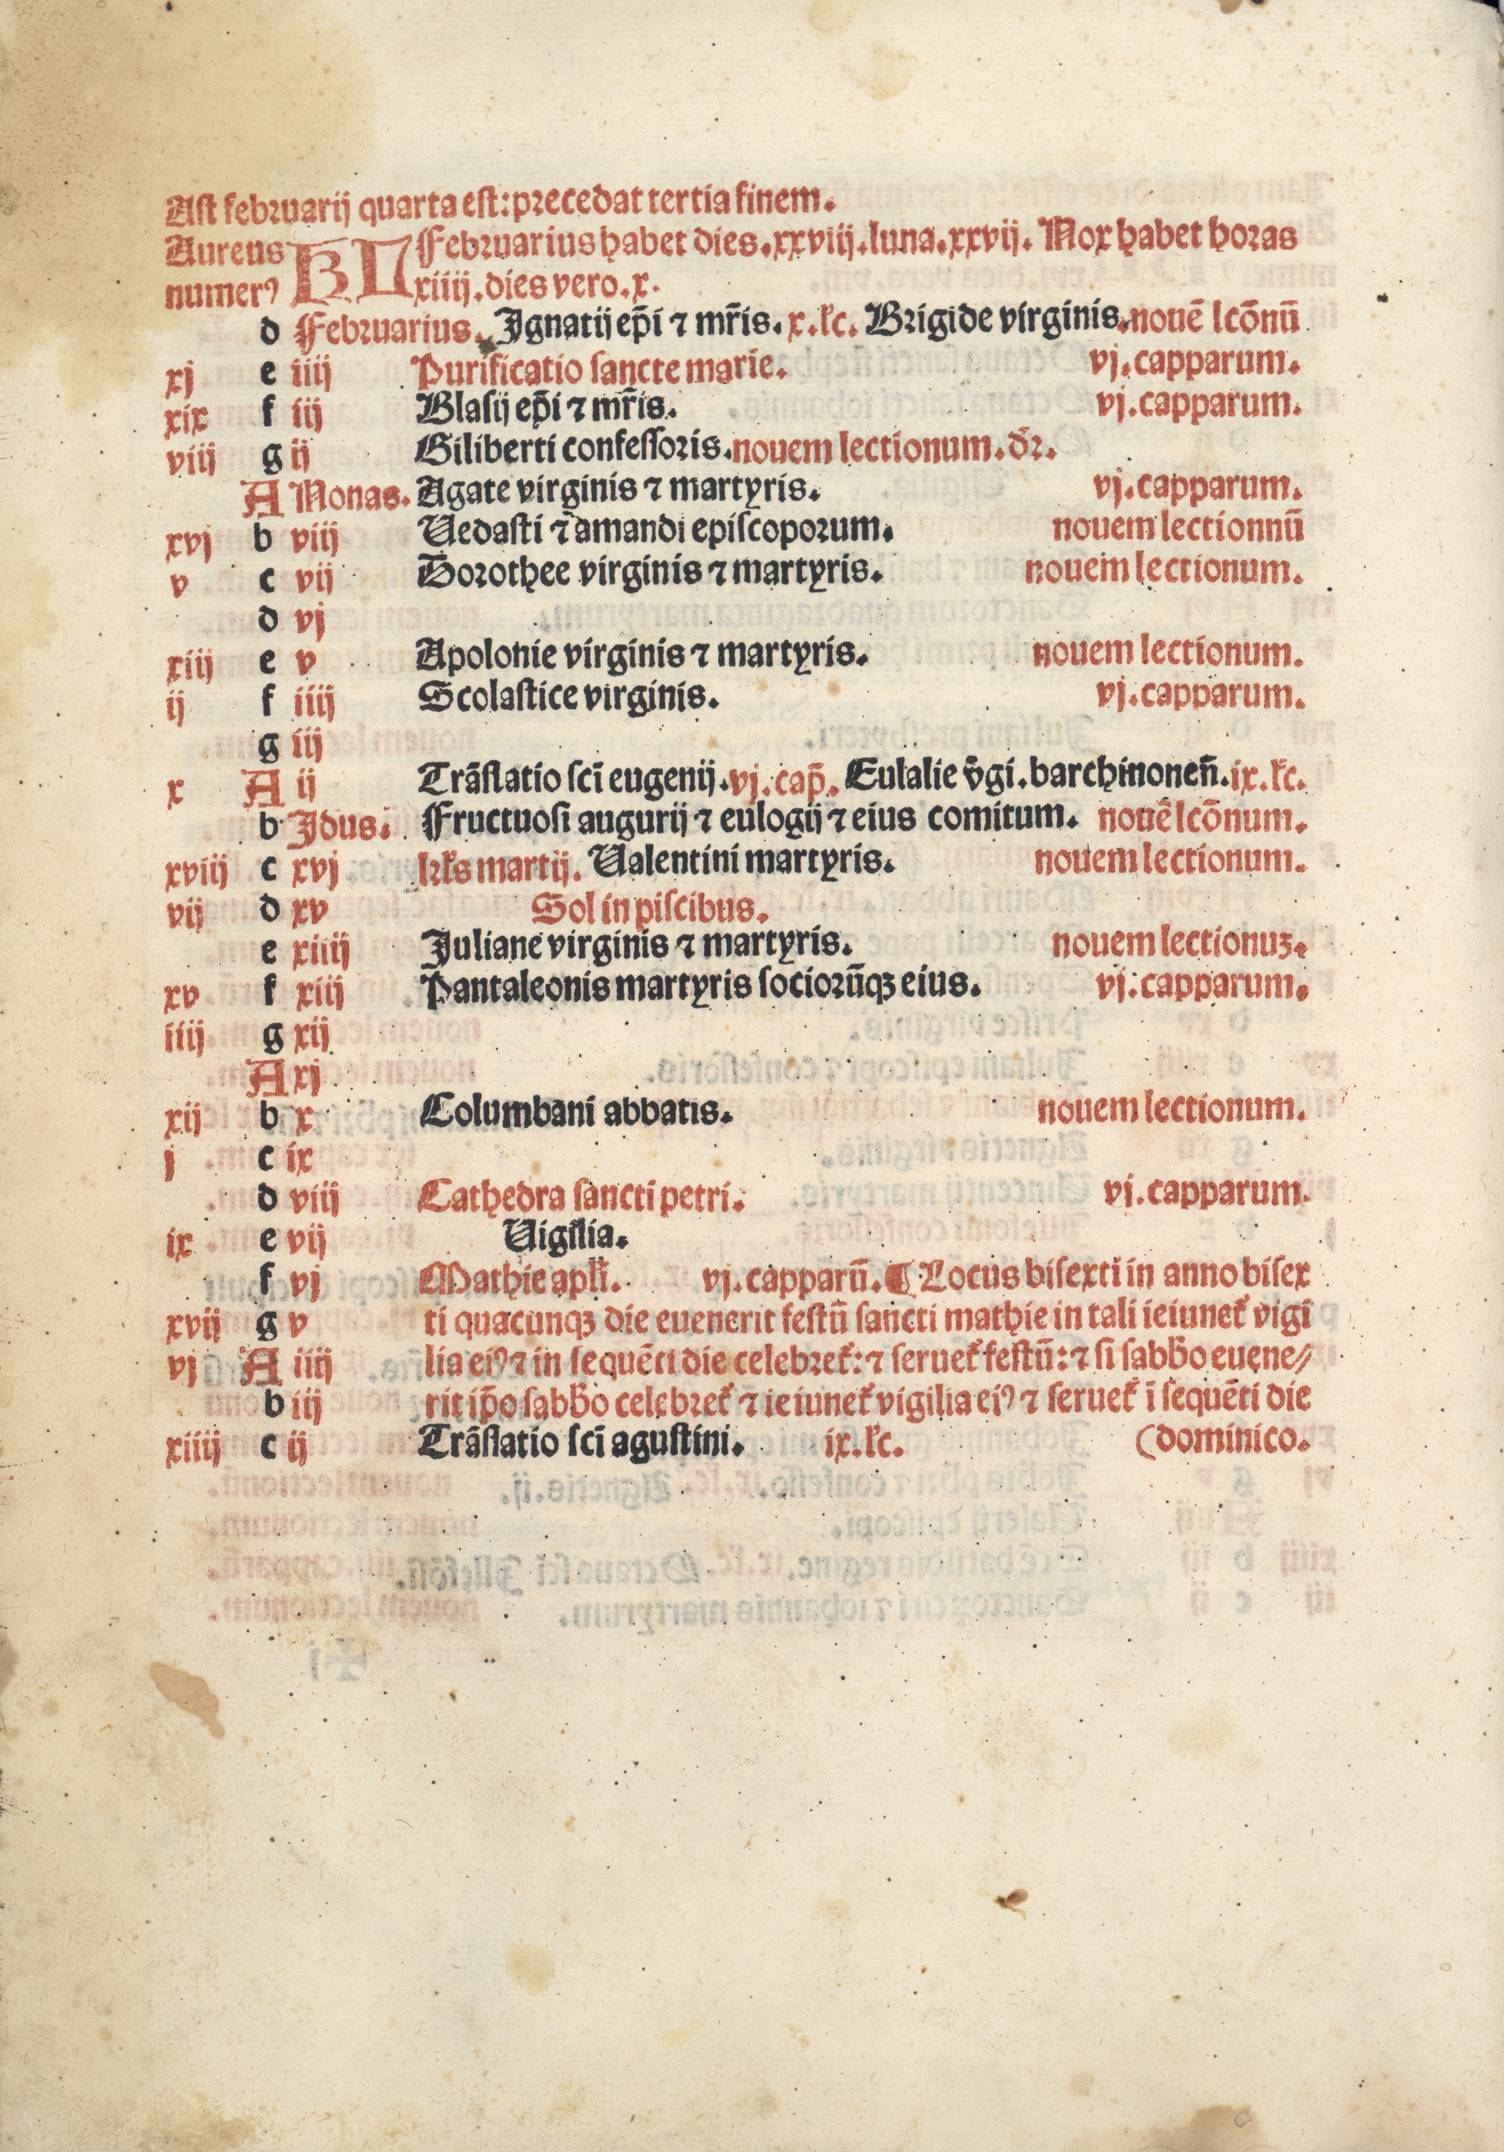 Ast februarij quarta est: precedat tertia finem.
Aureus KL Februarius habet dies.xxviij.luna.xxvij. Nox habet horas
numerꝰ xiiij.dies vero.x.
d Februarius. Ignatij ep̄i ⁊ mr̄is.x.lc. Brigide virginis.nouē lcōnū
xj e iiij Purificatio sancte marie. vj.capparum.
xix f iij Blasij ep̄i ⁊ mr̄is. vj.capparum.
viij g ij Giliberti confessoris.nouem lectionum.dr̄.
A Nonas. Agate virginis ⁊ martyris. vj.capparum.
xvj b viij Uedasti ⁊ amandi episcoporum. nouem lectionnū
v c vij Dorothee virginis ⁊ martyris. nouem lectionum.
d vj
xiij e v Apolonie virginis ⁊ martyris. nouem lectionum.
ij f iiij Scolastice virginis. vj.capparum.
g iij
x A ij Trāslatio scī eugenij.vj.cap̄. Eulalie v̄gi.barchinoneñ.ix.lc.
b Idus. Fructuosi augurij ⁊ eulogij ⁊ eius comitum. nouē lcōnum.
xviij c xvj kls martij. Ualentini martyris. nouem lectionum.
vij d xv Sol in piscibus.
e xiiij Juliane virginis ⁊ martyris. nouem lectionuꝫ.
xv f xiij Pantaleonis martyris sociorūqꝫ eius. vj.capparum.
iiij g xij
A xj
xij b x Columbani abbatis. nouem lectionum.
j c ix
d viij Cathedra sancti petri. vj.capparum.
ix e vij Uigilia.
f vj Mathie apl̄i. vj.capparū. ¶ Locus bisexti in anno bisex
xvij g v ti quacunqꝫ die euenerit festū sancti mathie in tali ieiunet᷑ vigi
vj A iiij lia eiꝰ ⁊ in sequēti die celebret᷑: ⁊ seruet᷑ festū: ⁊ si sabb̄o euene/
b iij rit ip̄o sabb̄o celebret᷑ ⁊ ieiunet᷑ vigilia eiꝰ ⁊ seruet᷑ ī sequēti die
xiiij c ij Trāslatio scī agustini. ix.lc. (dominico.